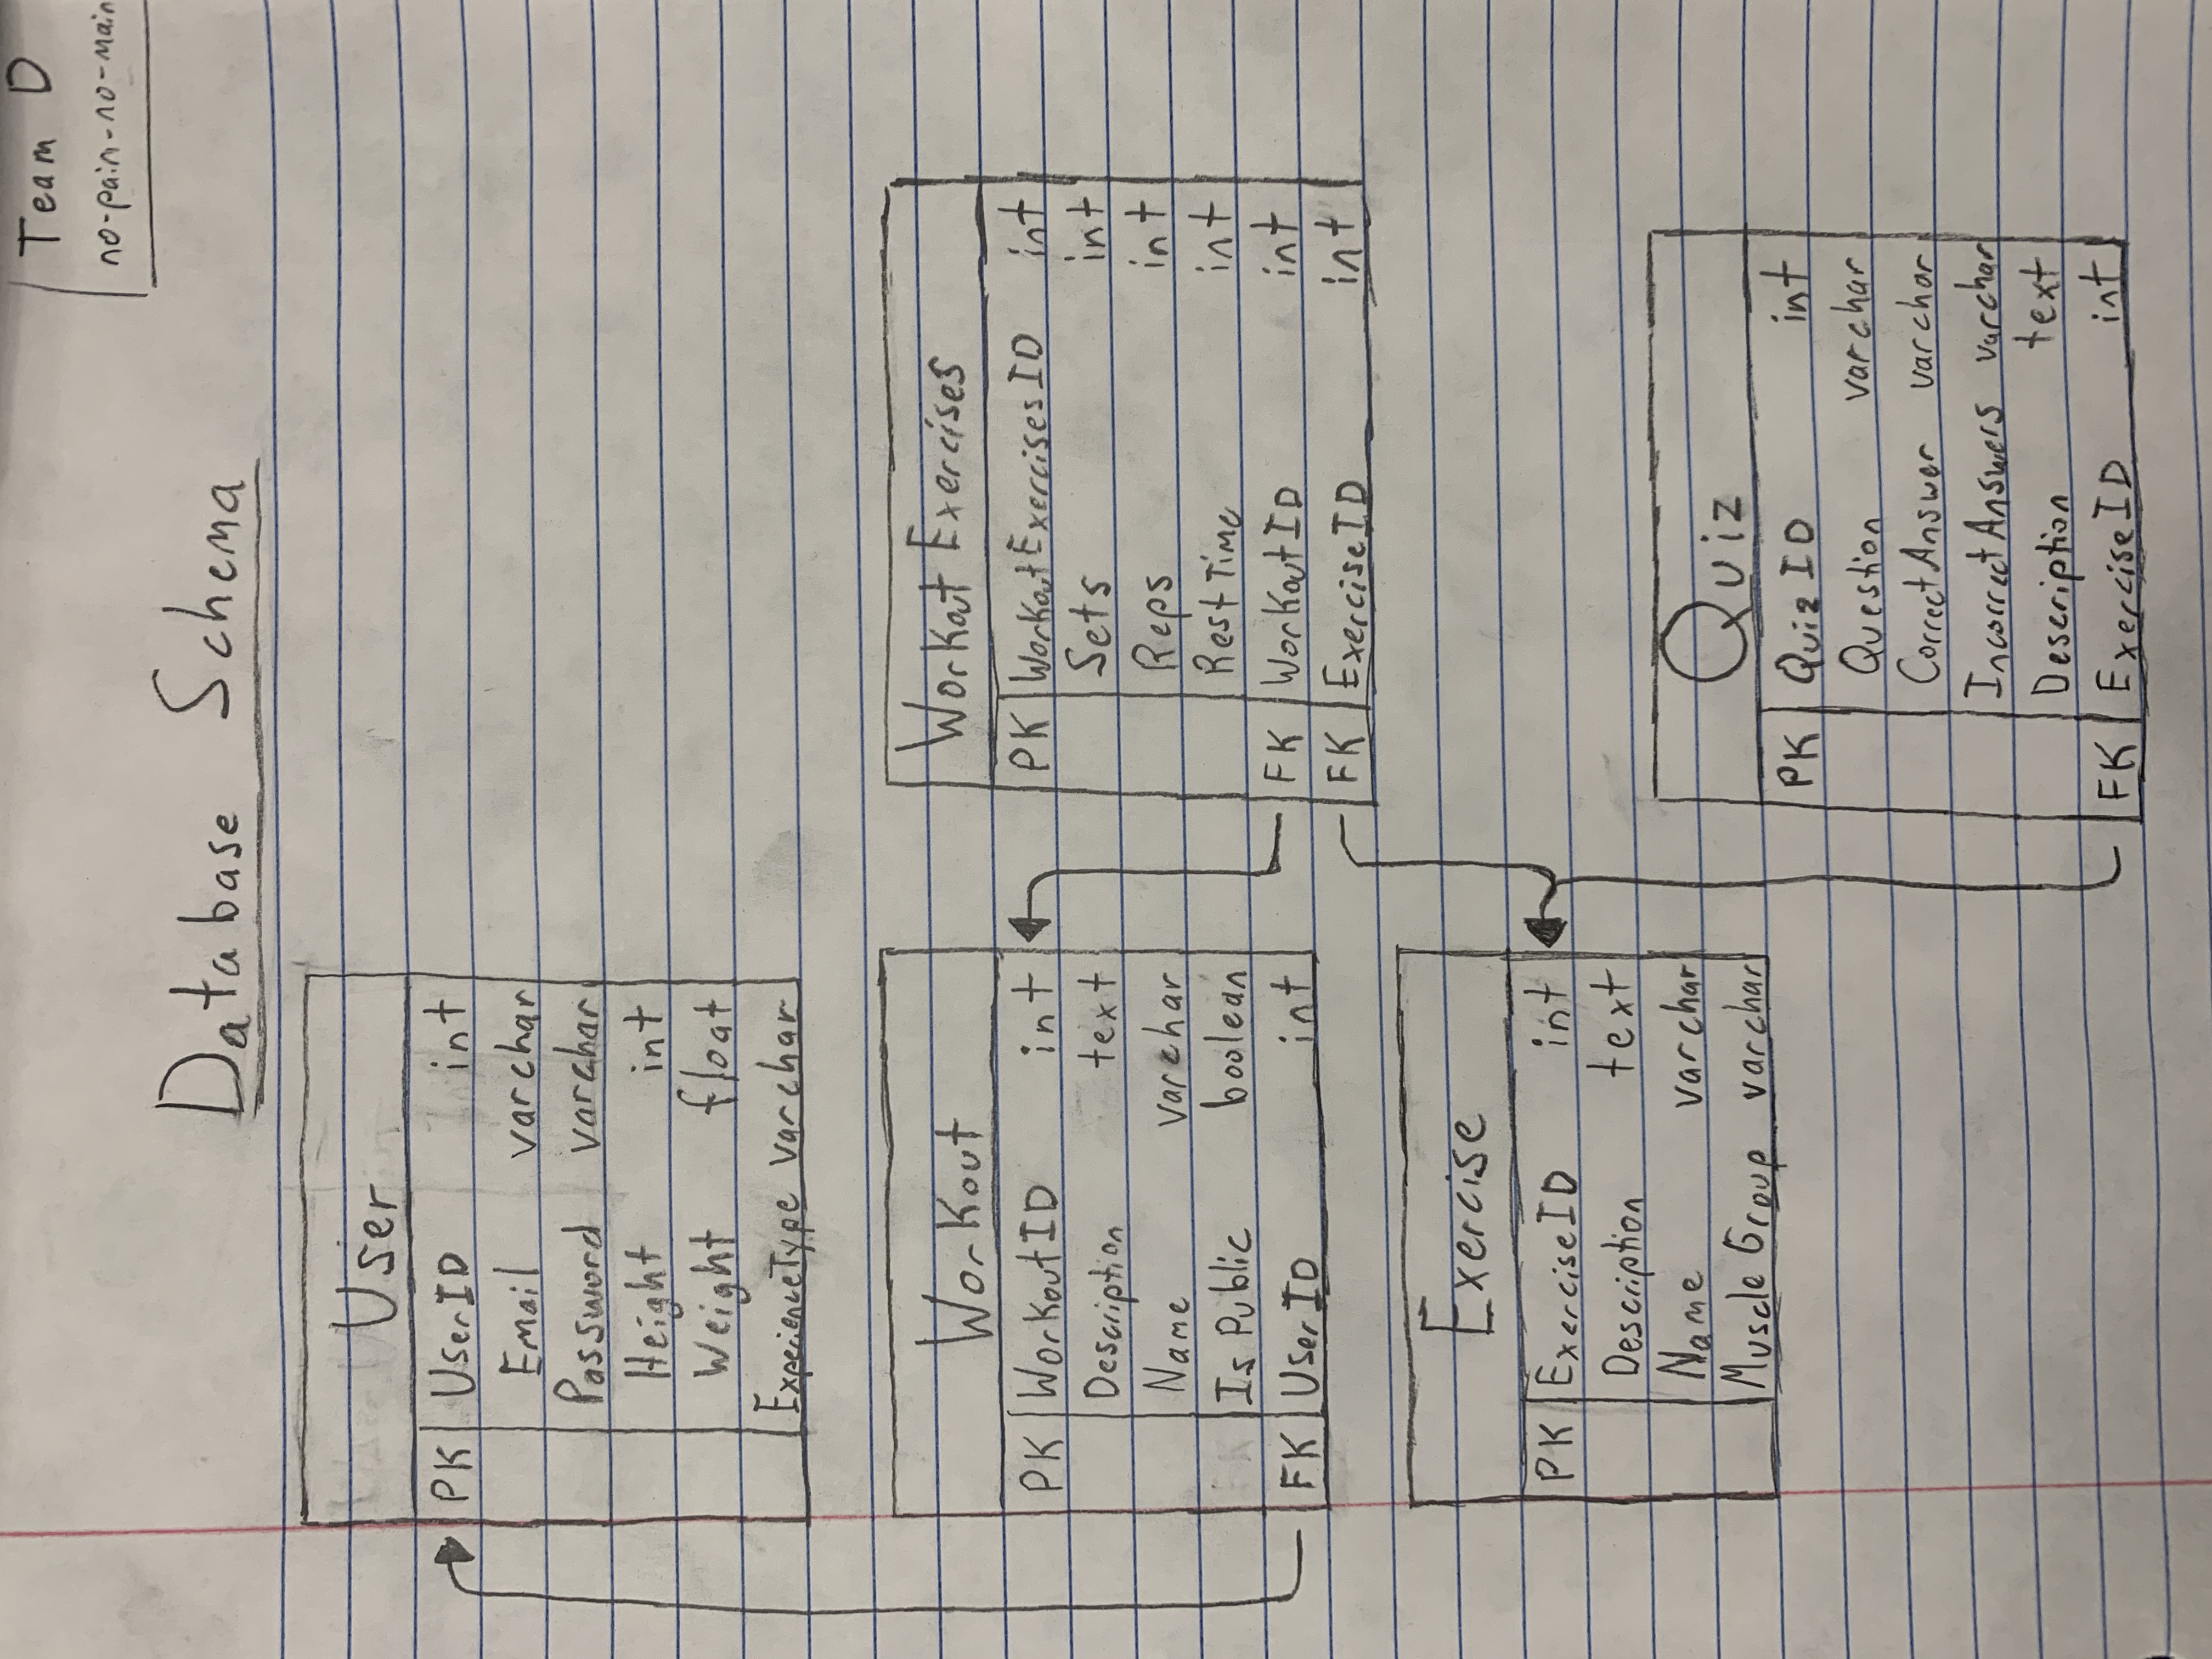 Team D
no-pain-no-main
Database Schema
User
PK UserID int
Email varchar
Password varchar
Height int
Weight float
ExperienceType varchar
Workout
PK WorkoutID int
Description text
Name varchar
Is Public boolean
FK UserID int
Workout Exercises
PK WorkoutExercisesID int
Sets int
Reps int
Rest Time int
FK WorkoutID int
FK ExerciseID int
Exercise
PK ExerciseID int
Description text
Name varchar
Muscle Group varchar
Quiz
PK QuizID int
Question varchar
CorrectAnswer varchar
IncorrectAnswers varchar
Description text
FK ExerciseID int